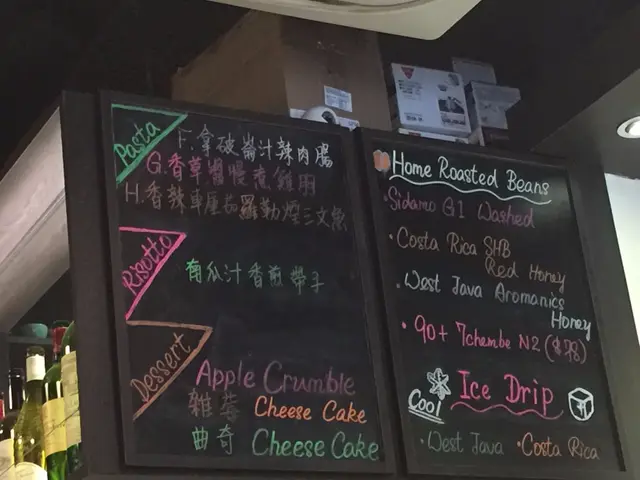 Pasta
F. 拿破崙汁辣肉腸
G. 香草醬慢煮雞用
H. 香辣車厘茄羅勒煙三文魚
Risotto
南瓜汁香煎帶子
Dessert
Apple Crumble
雜莓 Cheese Cake
曲奇 Cheese Cake
Home Roasted Beans
·Sidamo G1 Washed
·Costa Rica SHB
Red Honey
·West Java Aromanics
Honey
·90+ 7chembe N2 ($78)
Cool
Ice Drip
·West Java ·Costa Rica